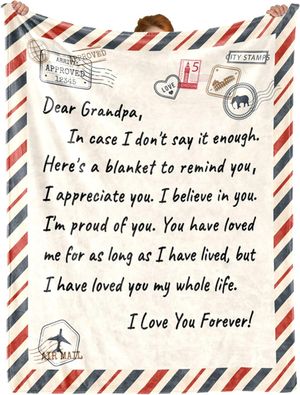 APPROVED
ARRIVED
APPROVED
12345
CITY STAMPS
5
LOVE
Dear Grandpa,
In case I don't say it enough.
Here's a blanket to remind you,
I appreciate you. I believe in you.
I'm proud of you. You have loved
me for as long as I have lived, but
I have loved you my whole life.
I Love You Forever!
AIR MAIL